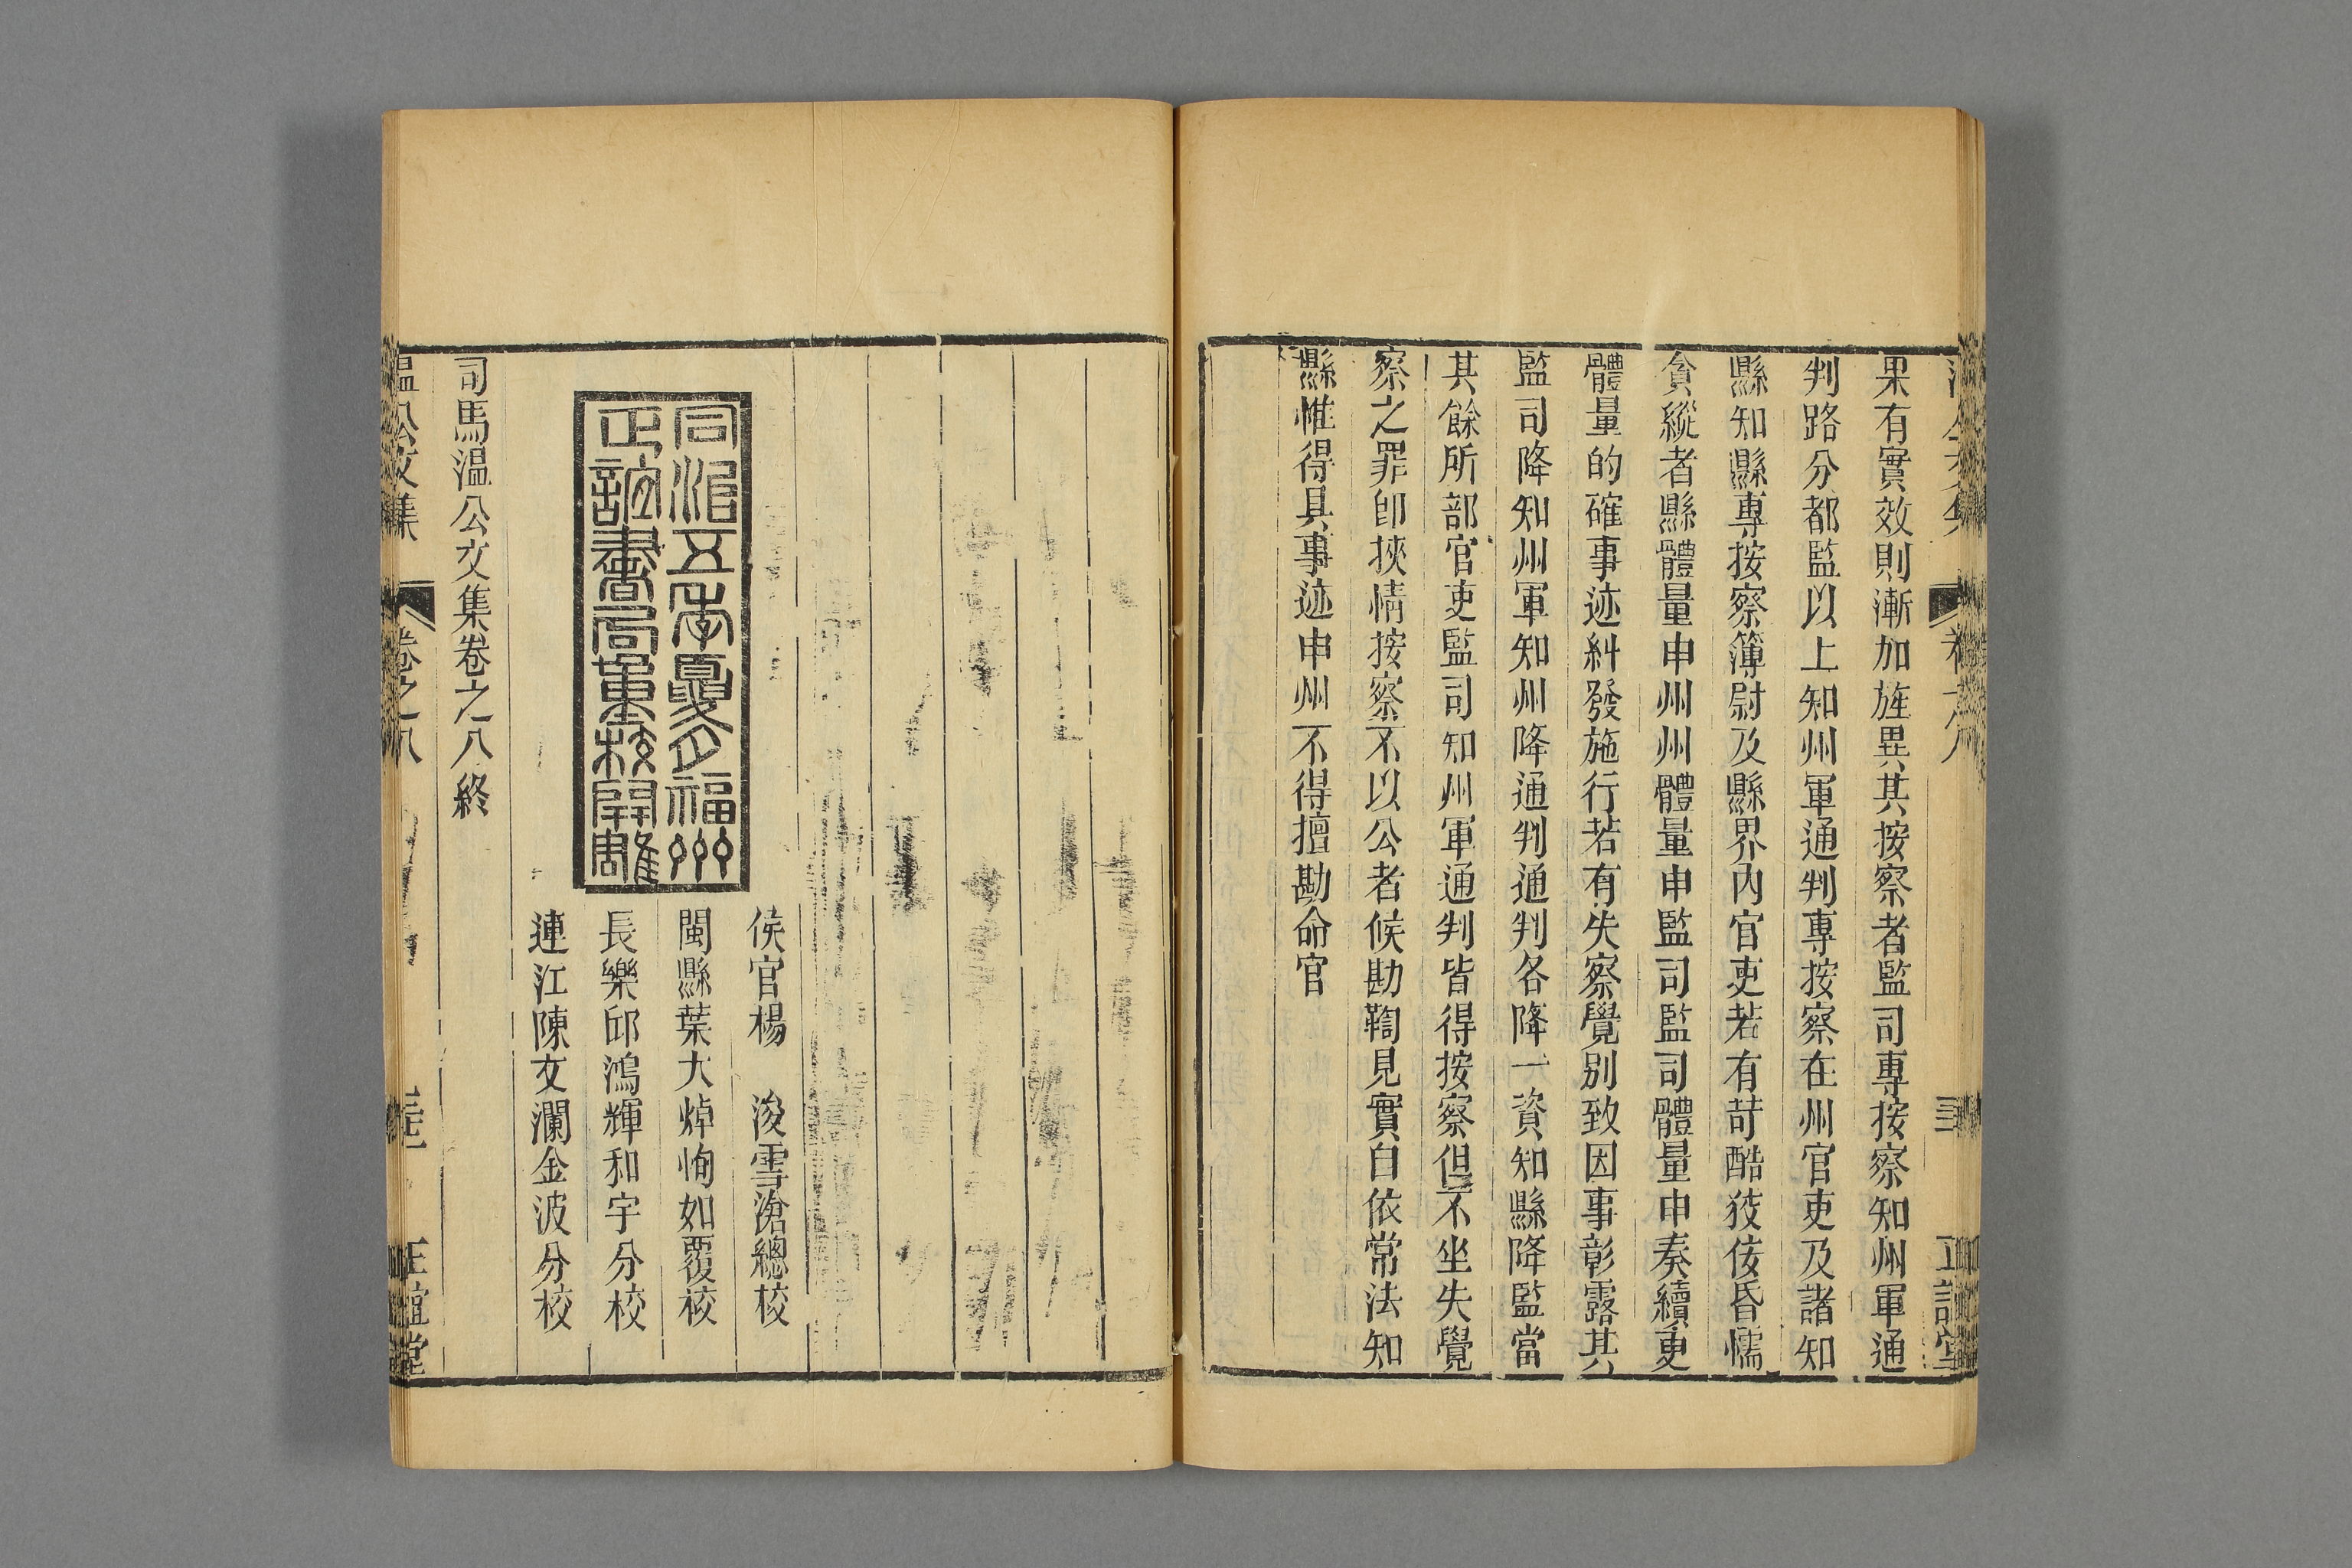 果有實效則漸加旌異其按察者監司專按察知州軍通
判路分都監以上知州軍通判專按察在州官吏及諸知
縣知縣專按察簿尉及縣界內官吏若有苛酷狡佞昏懦
貪縱者縣體量申州州體量申監司監司體量申奏續更
體量的確事迹糾發施行若有失察覺别致因事彰露其
監司降知州軍知州降通判通判各降一資知縣降監當
其餘所部官吏監司知州軍通判皆得按察但不坐失覺
察之罪卽挾情按察不以公者候勘鞫見實自依常法知
縣惟得具事迹申州不得擅勘命官
正誼堂
同治五年夏月福州
正誼書局重校開雕
侯官楊 浚雪滄總校
閩縣葉大焯恂如覆校
長樂邱鴻輝和宇分校
連江陳文瀾金波分校
司馬溫公文集卷之八終
溫公文集 卷之八 正誼堂